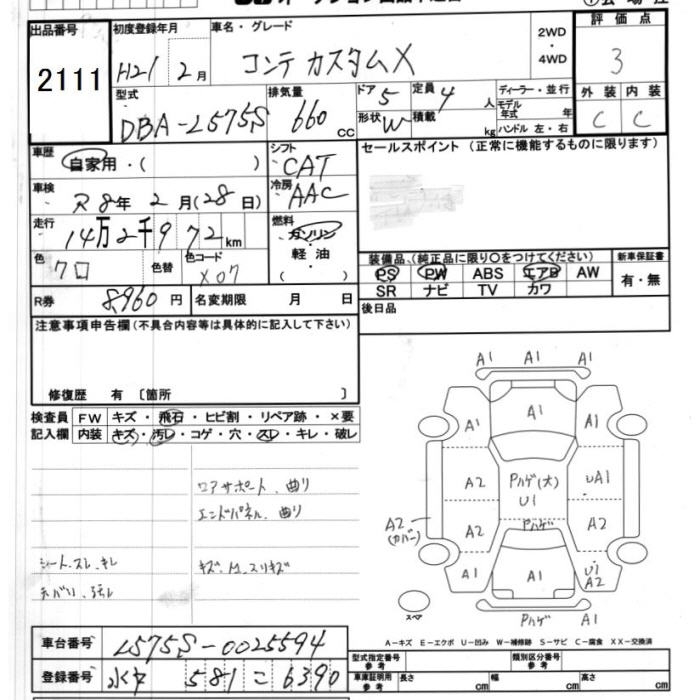 出品番号 2111
初度登録年月 H21 2月
車名・グレード コンテ カスタムX
2WD・4WD
評価点 3
外装 C 内装 C
型式 DBA-L575S
排気量 660 CC
ドア 5 定員 4 人
形状 W 積載 kg
ディーラー・並行
モデル年式 年
ハンドル 左・右
車歴 自家用・( )
シフト CAT
セールスポイント (正常に機能するものに限ります)
車検 R8年 2月(28日)
冷房 AAC
走行 14万2千972km
燃料 ガソリン 軽油 ( )
色 クロ 色替 色コード X07
装備品、(純正品に限り○をつけてください)
新車保証書
PS PW ABS エアB AW
有・無
SR ナビ TV カワ
R券 8960円 名変期限 月 日
後日品
注意事項申告欄(不具合内容等は具体的に記入して下さい)
修復歴 有 〔箇所 〕
検査員 FW キズ・飛石・ヒビ割・リペア跡・×要
記入欄 内装 キズ・汚レ・コゲ・穴・スレ・キレ・破レ
コアサポート 曲り
エンドパネル 曲り
シート、スレ、キレ
キズ、M、スリキズ
A1 A1 A1
A1 A1 A1
A2 Pハゲ(大) U1 UA1
A2 (カバー) A2 Pハゲ A2
A1 A1 U1 A2
スペア Pハゲ A1
A-キズ E-エクボ U-凹み W-補修跡 S-サビ C-腐食 XX-交換済
車台番号 L575S-0025594
型式指定番号 参考 類別区分番号 参考
登録番号 581 こ 6390
車庫証明用 参考 長さ cm 幅 cm 高さ cm